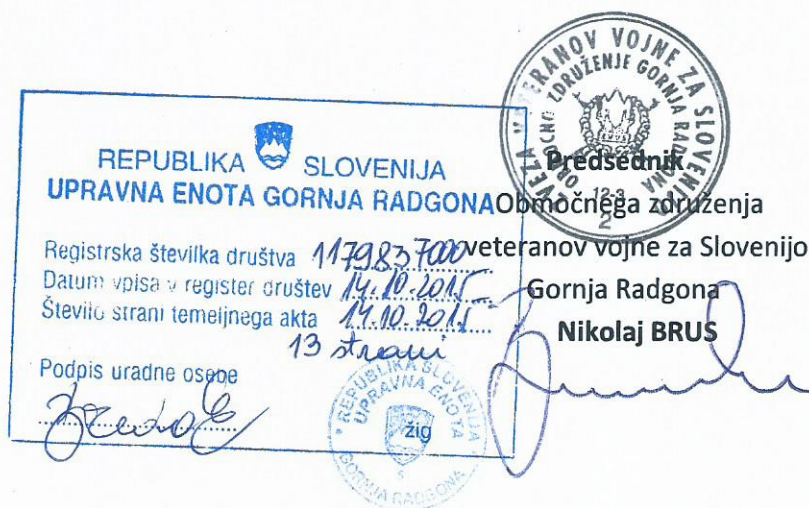 REPUBLIKA SLOVENIJA
UPRAVNA ENOTA GORNJA RADGONA
Registrska številka društva 1179837000
Datum vpisa v register društev 14.10.2015
Število strani temeljnega akta 14.10.2015
13 strani
Podpis uradne osebe
žig
REPUBLIKA SLOVENIJA
UPRAVNA ENOTA
GORNJA RADGONA
ZVEZA VETERANOV VOJNE ZA SLOVENIJO
OBMOČNO ZDRUŽENJE GORNJA RADGONA
12-3
2
Predsednik
Območnega združenja
veteranov vojne za Slovenijo
Gornja Radgona
Nikolaj BRUS